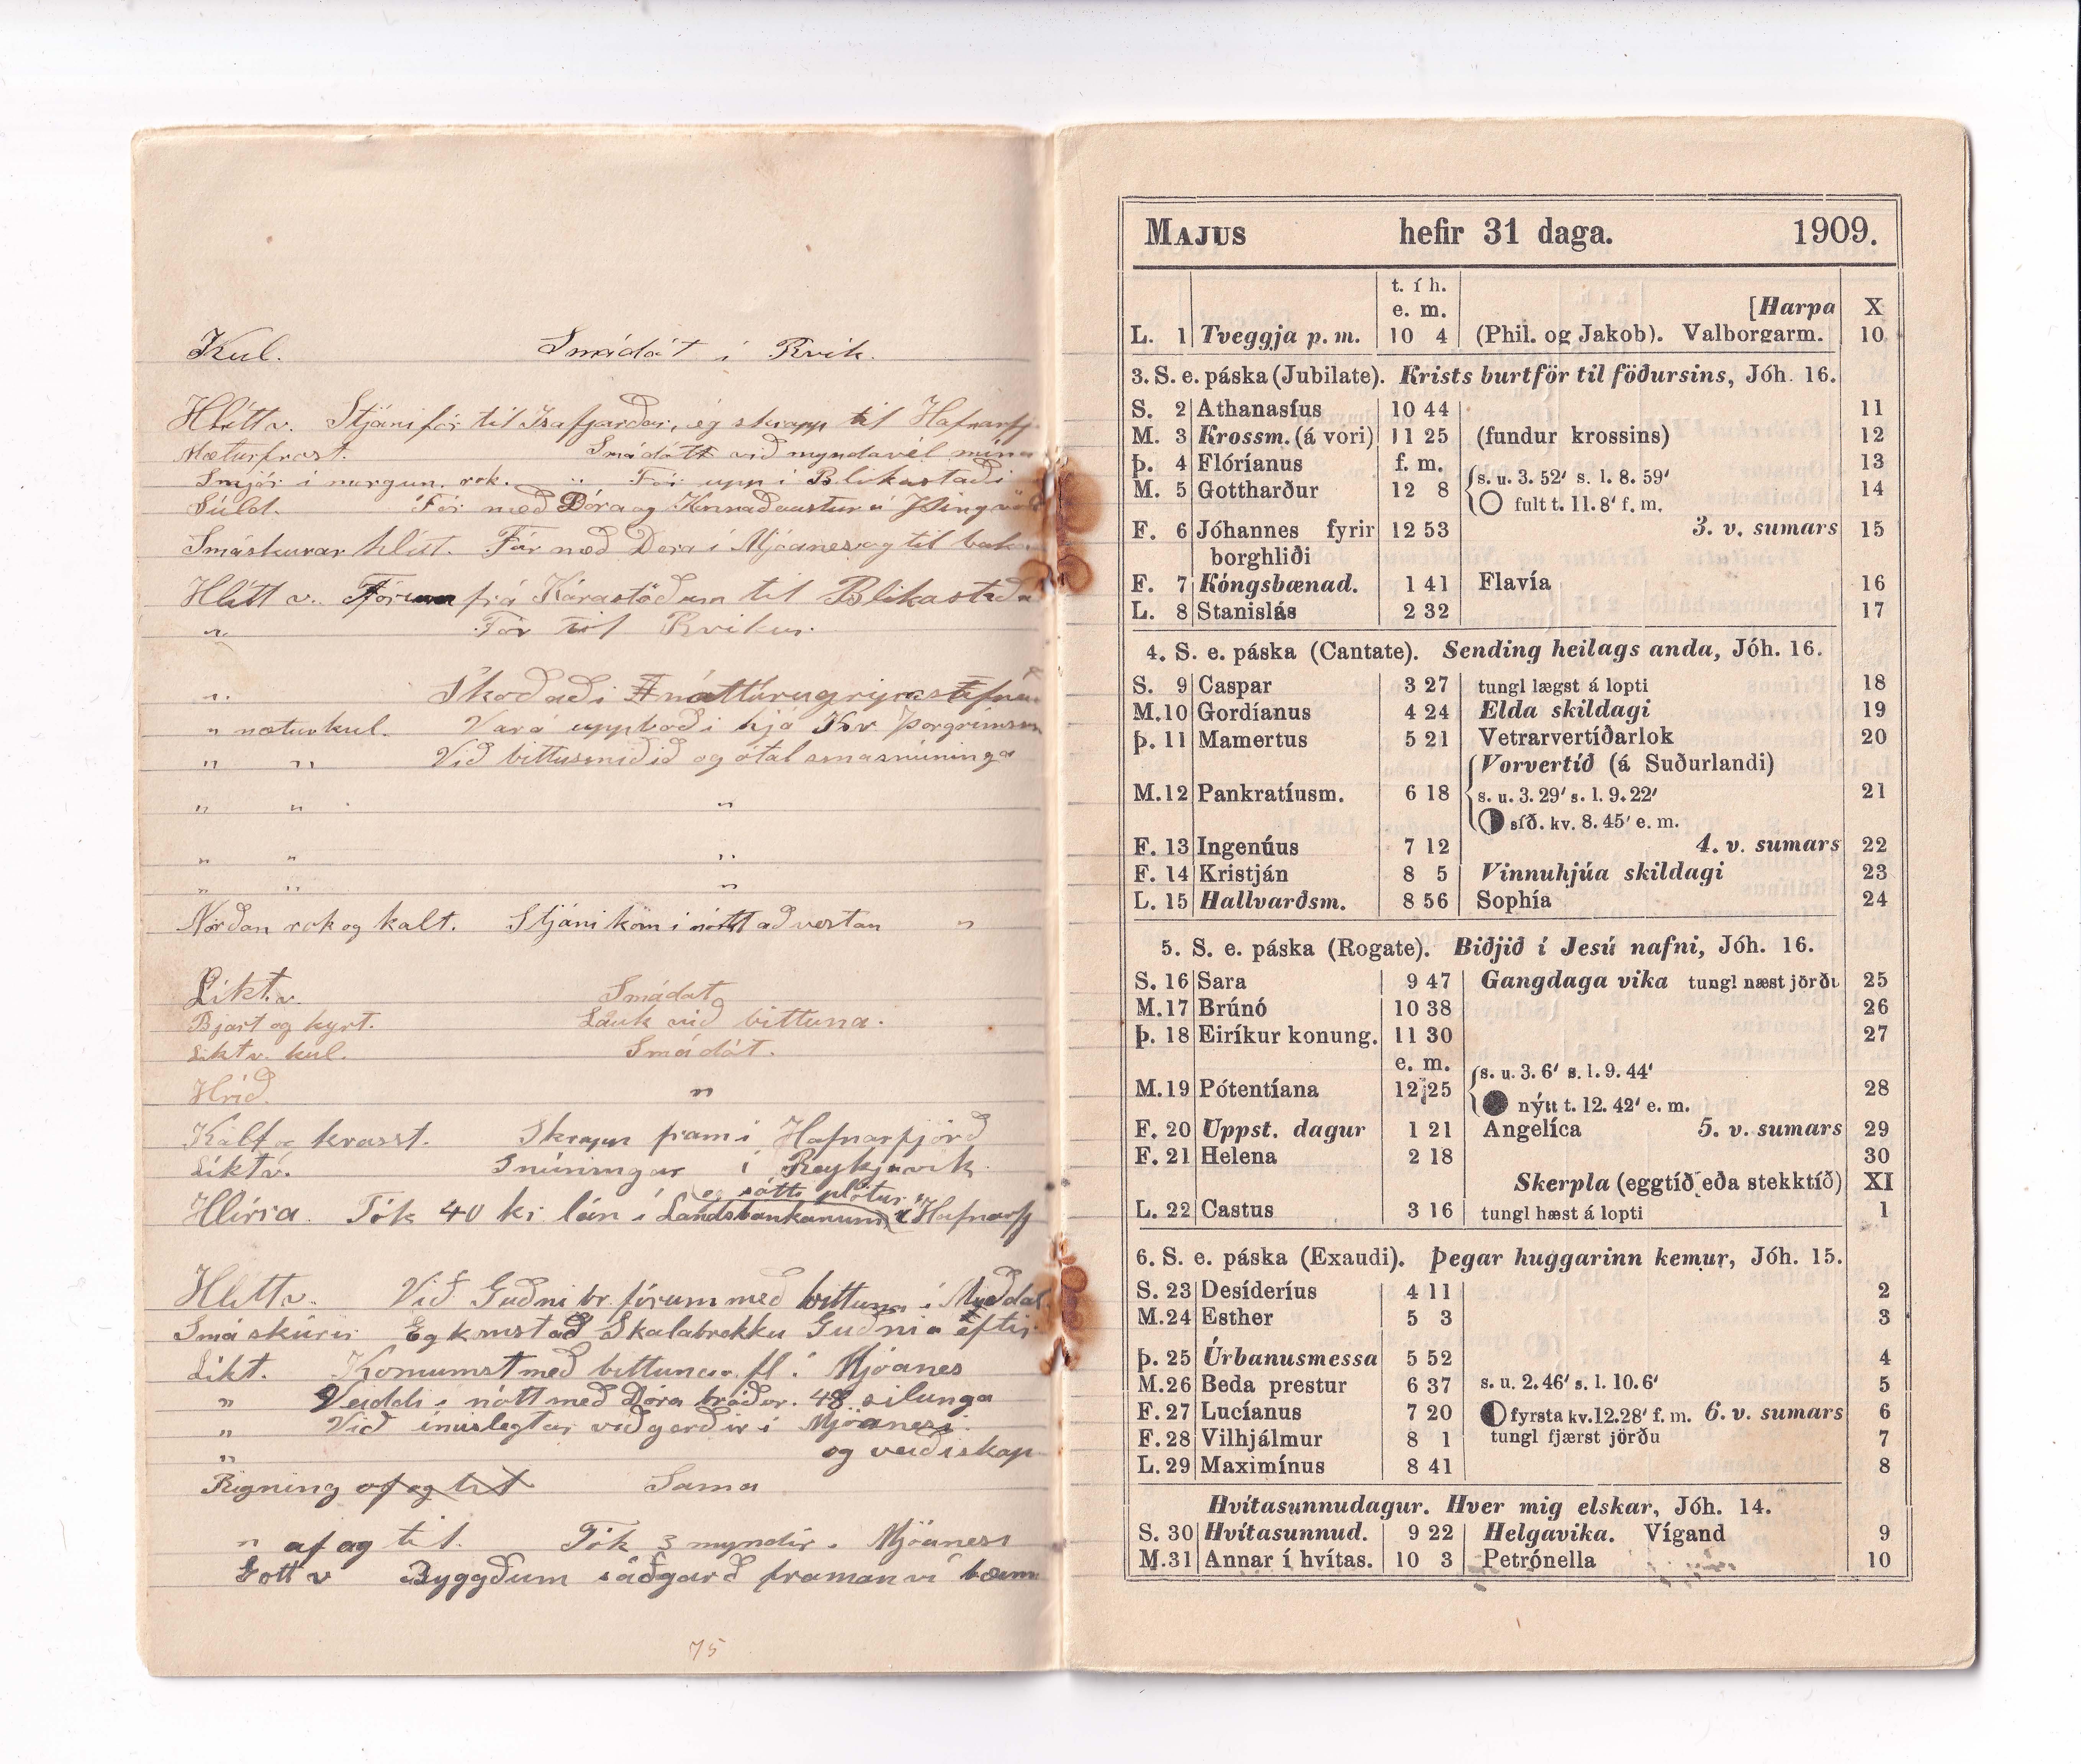 Kul. Smádót í Rvík.
Hlítt v. Stjáni fór til Ísafjarðar, ég skrapp til Hafnarfj.
Næturfrost. Smádótt við myndavél mína
Snjór í morgun. rok. " Fór upp í Blikastaði
Súld. Fór með Dóra og austur á Þingvöll
Smáskúrar hlítt. Fór með Dóra í Mjóanes og til baka
Hlítt v. Fórum frá Kárastöðum til Blikastaða
" Fór til Rvíkur.
" Skoðaði náttúrugripasafnið
" næturkul. Var á uppboði hjá Þorgrímssyni
" " Við bittusmíðið og ótal smásnúninga
" " "
" " "
" " "
Norðan rok og kalt. Stjáni kom í nótt að vestan "
Líkt. v. Smádót
Bjart og kyrt. Lauk við bittuna.
Líkt v. kul. Smádót.
Hríð. "
Kalt og hvasst. Skrapp fram í Hafnarfjörð
Líkt v. Snúningar í Reykjavík
og sótti plötur í
Hlírra. Tók 40 kr lán í Landsbankanum Hafnarfj
Hlítt v. Við Guðni br. fórum með bittuna í
Smáskúrir Eg komst að Skálabrekku Guðni eftir
Líkt. Komumst með bittuna o. fl. í Mjóanes
" Veiddi í nótt með Dóra bróðor. 48 silunga
" Við ímislegtar viðgerðir í Mjóanesi
" og veiðiskap
Rigning af og til Sama
" af og til. Tók 3 myndir í Mjóanesi
Gott v Byggðum sáðgarð framan ví bæinn
75
MAJUS hefir 31 daga. 1909.
t. í h.
e. m. [Harpa X
L. 1 Tveggja p. m. 10 4 (Phil. og Jakob). Valborgarm. 10
3. S. e. páska (Jubilate). Krists burtför til föðursins, Jóh. 16.
S. 2 Athanasíus 10 44 11
M. 3 Krossm. (á vori) 11 25 (fundur krossins) 12
Þ. 4 Flóríanus f. m. 13
s. u. 3. 52' s. l. 8. 59'
M. 5 Gottharður 12 8 14
fult t. 11. 8' f. m.
F. 6 Jóhannes fyrir 12 53 3. v. sumars 15
borghliði
F. 7 Kóngsbænad. 1 41 Flavía 16
L. 8 Stanislás 2 32 17
4. S. e. páska (Cantate). Sending heilags anda, Jóh. 16.
S. 9 Caspar 3 27 tungl lægst á lopti 18
M. 10 Gordíanus 4 24 Elda skildagi 19
Þ. 11 Mamertus 5 21 Vetrarvertíðarlok 20
Vorvertíð (á Suðurlandi)
M. 12 Pankratíusm. 6 18 s. u. 3. 29' s. l. 9. 22' 21
síð. kv. 8. 45' e. m.
F. 13 Ingenúus 7 12 4. v. sumars 22
F. 14 Kristján 8 5 Vinnuhjúa skildagi 23
L. 15 Hallvarðsm. 8 56 Sophía 24
5. S. e. páska (Rogate). Biðjið í Jesú nafni, Jóh. 16.
S. 16 Sara 9 47 Gangdaga vika tungl næst jörðu 25
M. 17 Brúnó 10 38 26
Þ. 18 Eiríkur konung. 11 30 27
e. m.
s. u. 3. 6' s. l. 9. 44'
M. 19 Pótentíana 12 25 28
nýtt t. 12. 42' e. m.
F. 20 Uppst. dagur 1 21 Angelíca 5. v. sumars 29
F. 21 Helena 2 18 30
Skerpla (eggtíð eða stekktíð) XI
L. 22 Castus 3 16 tungl hæst á lopti 1
6. S. e. páska (Exaudi). Þegar huggarinn kemur, Jóh. 15.
S. 23 Desíderíus 4 11 2
M. 24 Esther 5 3 3
Þ. 25 Úrbanusmessa 5 52 4
M. 26 Beda prestur 6 37 s. u. 2. 46' s. l. 10. 6' 5
F. 27 Lucíanus 7 20 fyrsta kv. 12. 28' f. m. 6. v. sumars 6
F. 28 Vilhjálmur 8 1 tungl fjærst jörðu 7
L. 29 Maximínus 8 41 8
Hvítasunnudagur. Hver mig elskar, Jóh. 14.
S. 30 Hvítasunnud. 9 22 Helgavika. Vígand 9
M. 31 Annar í hvítas. 10 3 Petrónella 10